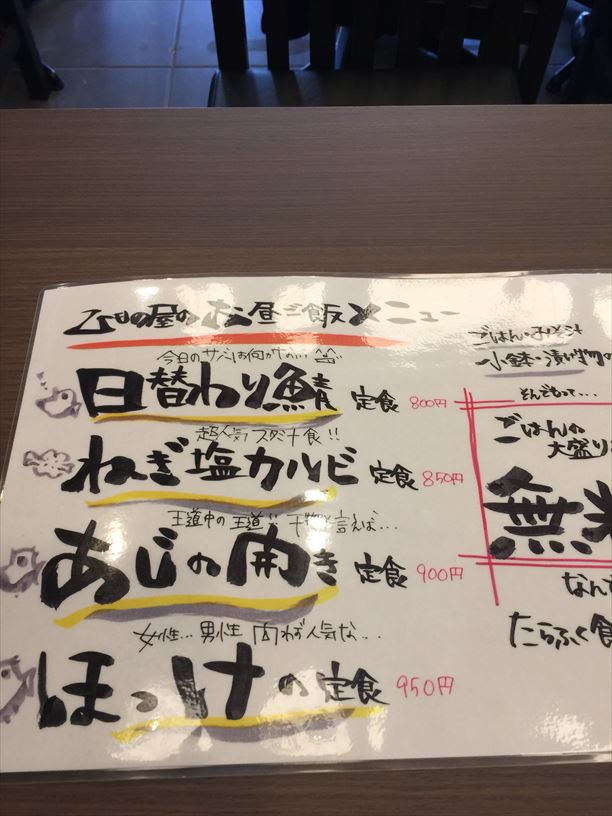 ひもの屋のお昼ご飯メニュー
今日のサバは何かナ…
日替わり鯖 定食 800円
超人気スタミナ食!!
ねぎ塩カルビ 定食 850円
王道中の王道!! 干物と言えば…
あじの開き 定食 900円
女性…男性 問わず人気な…
ほっけの定食 950円
ごはん・おみそ汁
小鉢・漬け物の
そんでもって…
ごはんの
大盛り
無料
なんで
たらふく食